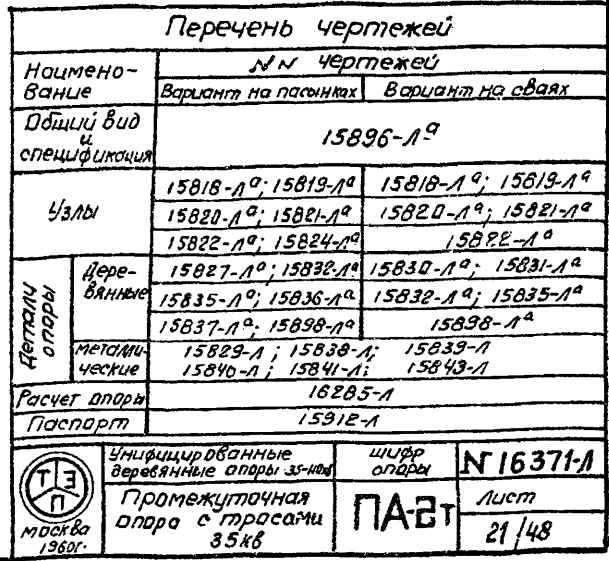 Перечень чертежей
Наимено-
вание
NN чертежей
Вариант на пасынках
Вариант на сваях
Общий вид
и
спецификация
15896-Лª
Узлы
15818-Лª; 15819-Лª
15818-Лª; 15819-Лª
15820-Лª; 15821-Лª
15820-Лª; 15821-Лª
15822-Лª; 15824-Лª
15822-Лª
Детали
опоры
Дере-
вянные
15827-Лª; 15832-Лª
15830-Лª; 15831-Лª
15835-Лª; 15836-Лª
15832-Лª; 15835-Лª
15837-Лª; 15898-Лª
15898-Лª
Металли-
ческие
15829-Л; 15838-Л; 15839-Л
15840-Л; 15841-Л; 15843-Л
Расчет опоры
16285-Л
Паспорт
15912-Л
ТЭП
Москва
1960г.
Унифицированные
деревянные опоры 35-110кв
шифр
опоры
N 16371-Л
Промежуточная
опора с тросами
35кв
ПА-2т
Лист
21/48